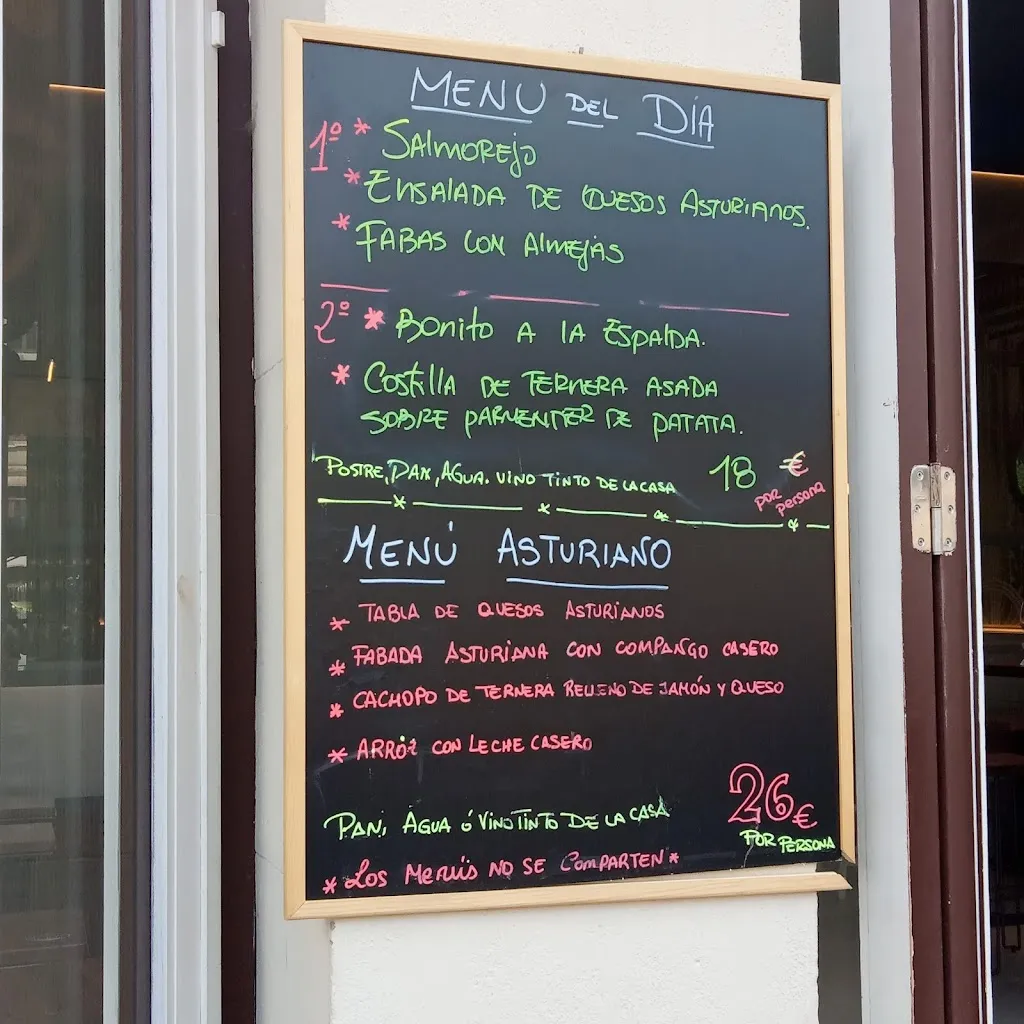 MENU DEL DÍA
1º * SALMOREJO
* ENSALADA DE QUESOS ASTURIANOS.
* FABAS CON ALMEJAS
2º * BONITO A LA ESPALDA.
* COSTILLA DE TERNERA ASADA
SOBRE PARMENTER DE PATATA.
POSTRE, PAN, AGUA. VINO TINTO DE LA CASA 18 € por persona
MENÚ ASTURIANO
* TABLA DE QUESOS ASTURIANOS
* FABADA ASTURIANA CON COMPANGO CASERO
* CACHOPO DE TERNERA RELLENO DE JAMÓN Y QUESO
* ARROZ CON LECHE CASERO
26€
PAN, AGUA ó VINO TINTO DE LA CASA
POR PERSONA
* LOS MENÚS NO SE COMPARTEN *